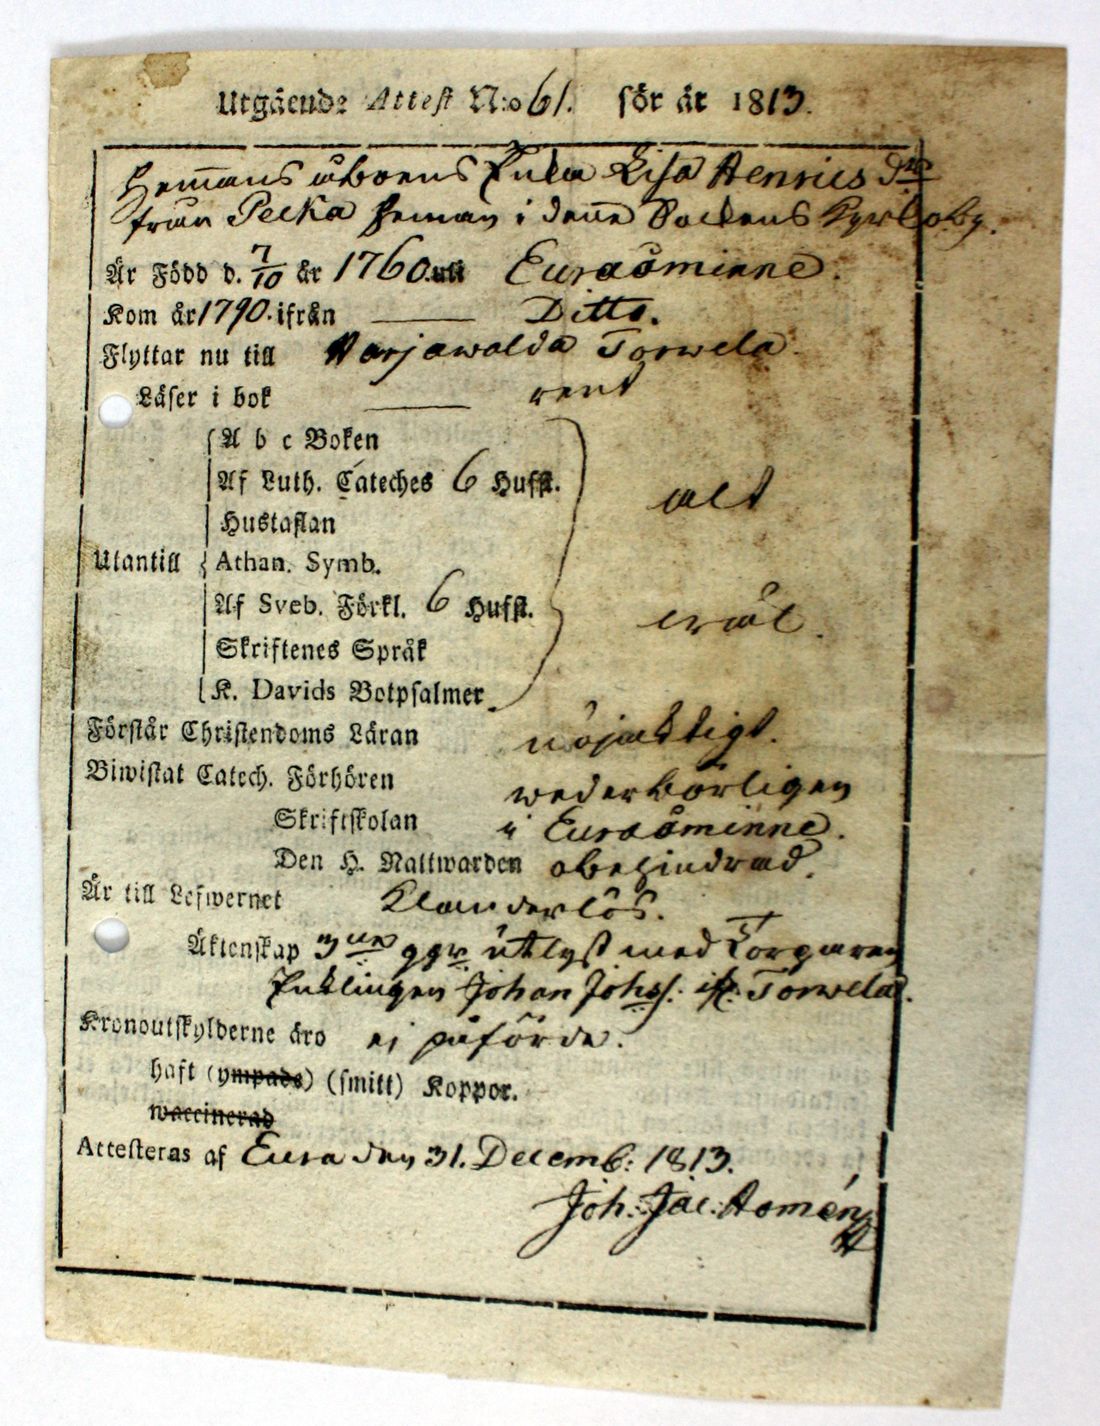 Utgående Attest N:o 61. för år 1813.
Hem̄ans åboens Enka Lisa Henrics dr
från Pecka Heman i den̄e Sockens Kyrkoby.
Är Född d. 7/10 år 1760. uti Euraåminne.
Kom år 1790. ifrån — Ditto.
Flyttar nu till Harjawalda Torwela.
Läser i bok — rent
A b c Boken
Af Luth. Cateches 6 Hufst. alt
Hustaflan
Utantill Athan. Symb.
Af Sveb. Förkl. 6 Hufst. wäl.
Skriftenes Språk
K. Davids Botpsalmer
Förstår Christendoms Läran nöjaktigt.
Biwistat Catech. Förhören wederbörligen
Skriftskolan i Euraåminne.
Den H. Nattwarden obehindrad.
Är till Lefwernet Klanderlös.
Äktenskap 3ne ggr utlyst med Torparen
Enklingen Johan Johss: ifr: Torwela.
Kronoutskylderne äro ej påförde.
haft (ympade) (smitt) Koppor.
waccinerad
Attesteras af Eura den 31. Decemb: 1813.
Joh. Jac. Homén